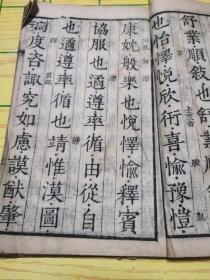 舒業順敘也舒業順
也怡懌悅欣衎喜愉豫愷
康妉般樂也悅懌愉釋賓
協服也遹遵率循由從自
也遹遵率循也靖惟漠圖
詢度咨諏究如慮謨猷肇